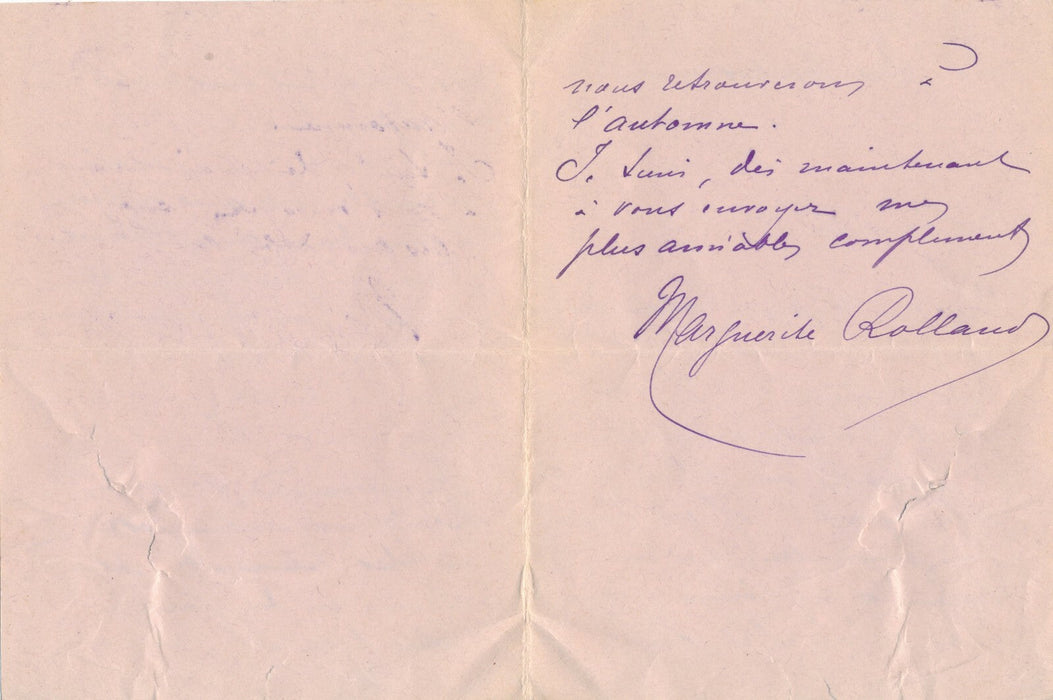 nous retrouverons à
l'automne.
Je tiens, dès maintenant
à vous envoyer mes
plus amiables compliments
Marguerite Rolland